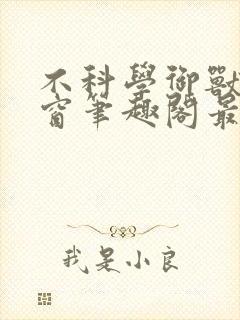 不科學御獸
窗筆趣閣最
我是小良